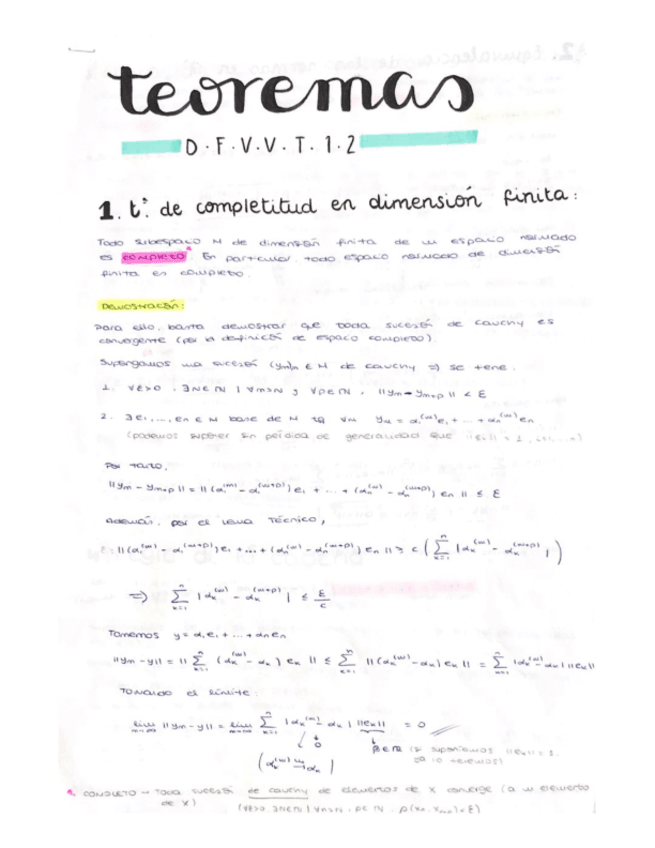 teoremas
D.F.V.V.T. 1.2
1. tº. de completitud en dimensión finita:
Todo subespacio M de dimensión finita de un espacio normado
es completo. En particular, todo espacio normado de dimensión
finita es completo.
Demostración:
Para ello, basta demostrar que toda sucesión de cauchy es
convergente (por la definición de espacio completo).
Supongamos una sucesión (ym)m ∈ M de cauchy ⇒ se tiene:
1. ∀ε>0, ∃N∈ℕ | ∀m>N y ∀p∈ℕ, ||ym - ym+p|| < ε
2. ∃ e₁, ..., en ∈ M base de M tq ∀m ym = α₁^(m) e₁ + ... + αn^(m) en
(podemos suponer sin pérdida de generalidad que ||ei|| = 1,
Por tanto,
||ym - ym+p|| = ||(α₁^(m) - α₁^(m+p)) e₁ + ... + (αn^(m) - αn^(m+p)) en|| ≤ ε
Además, por el lema Técnico,
||(α₁^(m) - α₁^(m+p)) e₁ + ... + (αn^(m) - αn^(m+p)) en|| ≥ c (∑ k=1 n |αk^(m) - αk^(m+p)|)
⇒ ∑ k=1 n |αk^(m) - αk^(m+p)| ≤ ε/c
Tomemos y = α₁e₁ + ... + αnen
||ym - y|| = ||∑ k=1 n (αk^(m) - αk) ek|| ≤ ∑ k=1 n ||(αk^(m) - αk) ek|| = ∑ k=1 n |αk^(m) - αk| ||ek||
Tomando el límite:
lim m→∞ ||ym - y|| = lim m→∞ ∑ k=1 n |αk^(m) - αk| ||ek|| = 0
↓ 0
(αk^(m) → αk)
(si suponíamos ||ek|| = 1,
ya lo tenemos)
COMPLETO → Toda sucesión de cauchy de elementos de X converge (a un elemento
de X)
(∀ε>0, ∃N∈ℕ | ∀m>N, p∈ℕ, ρ(xm, xm+p)<ε)